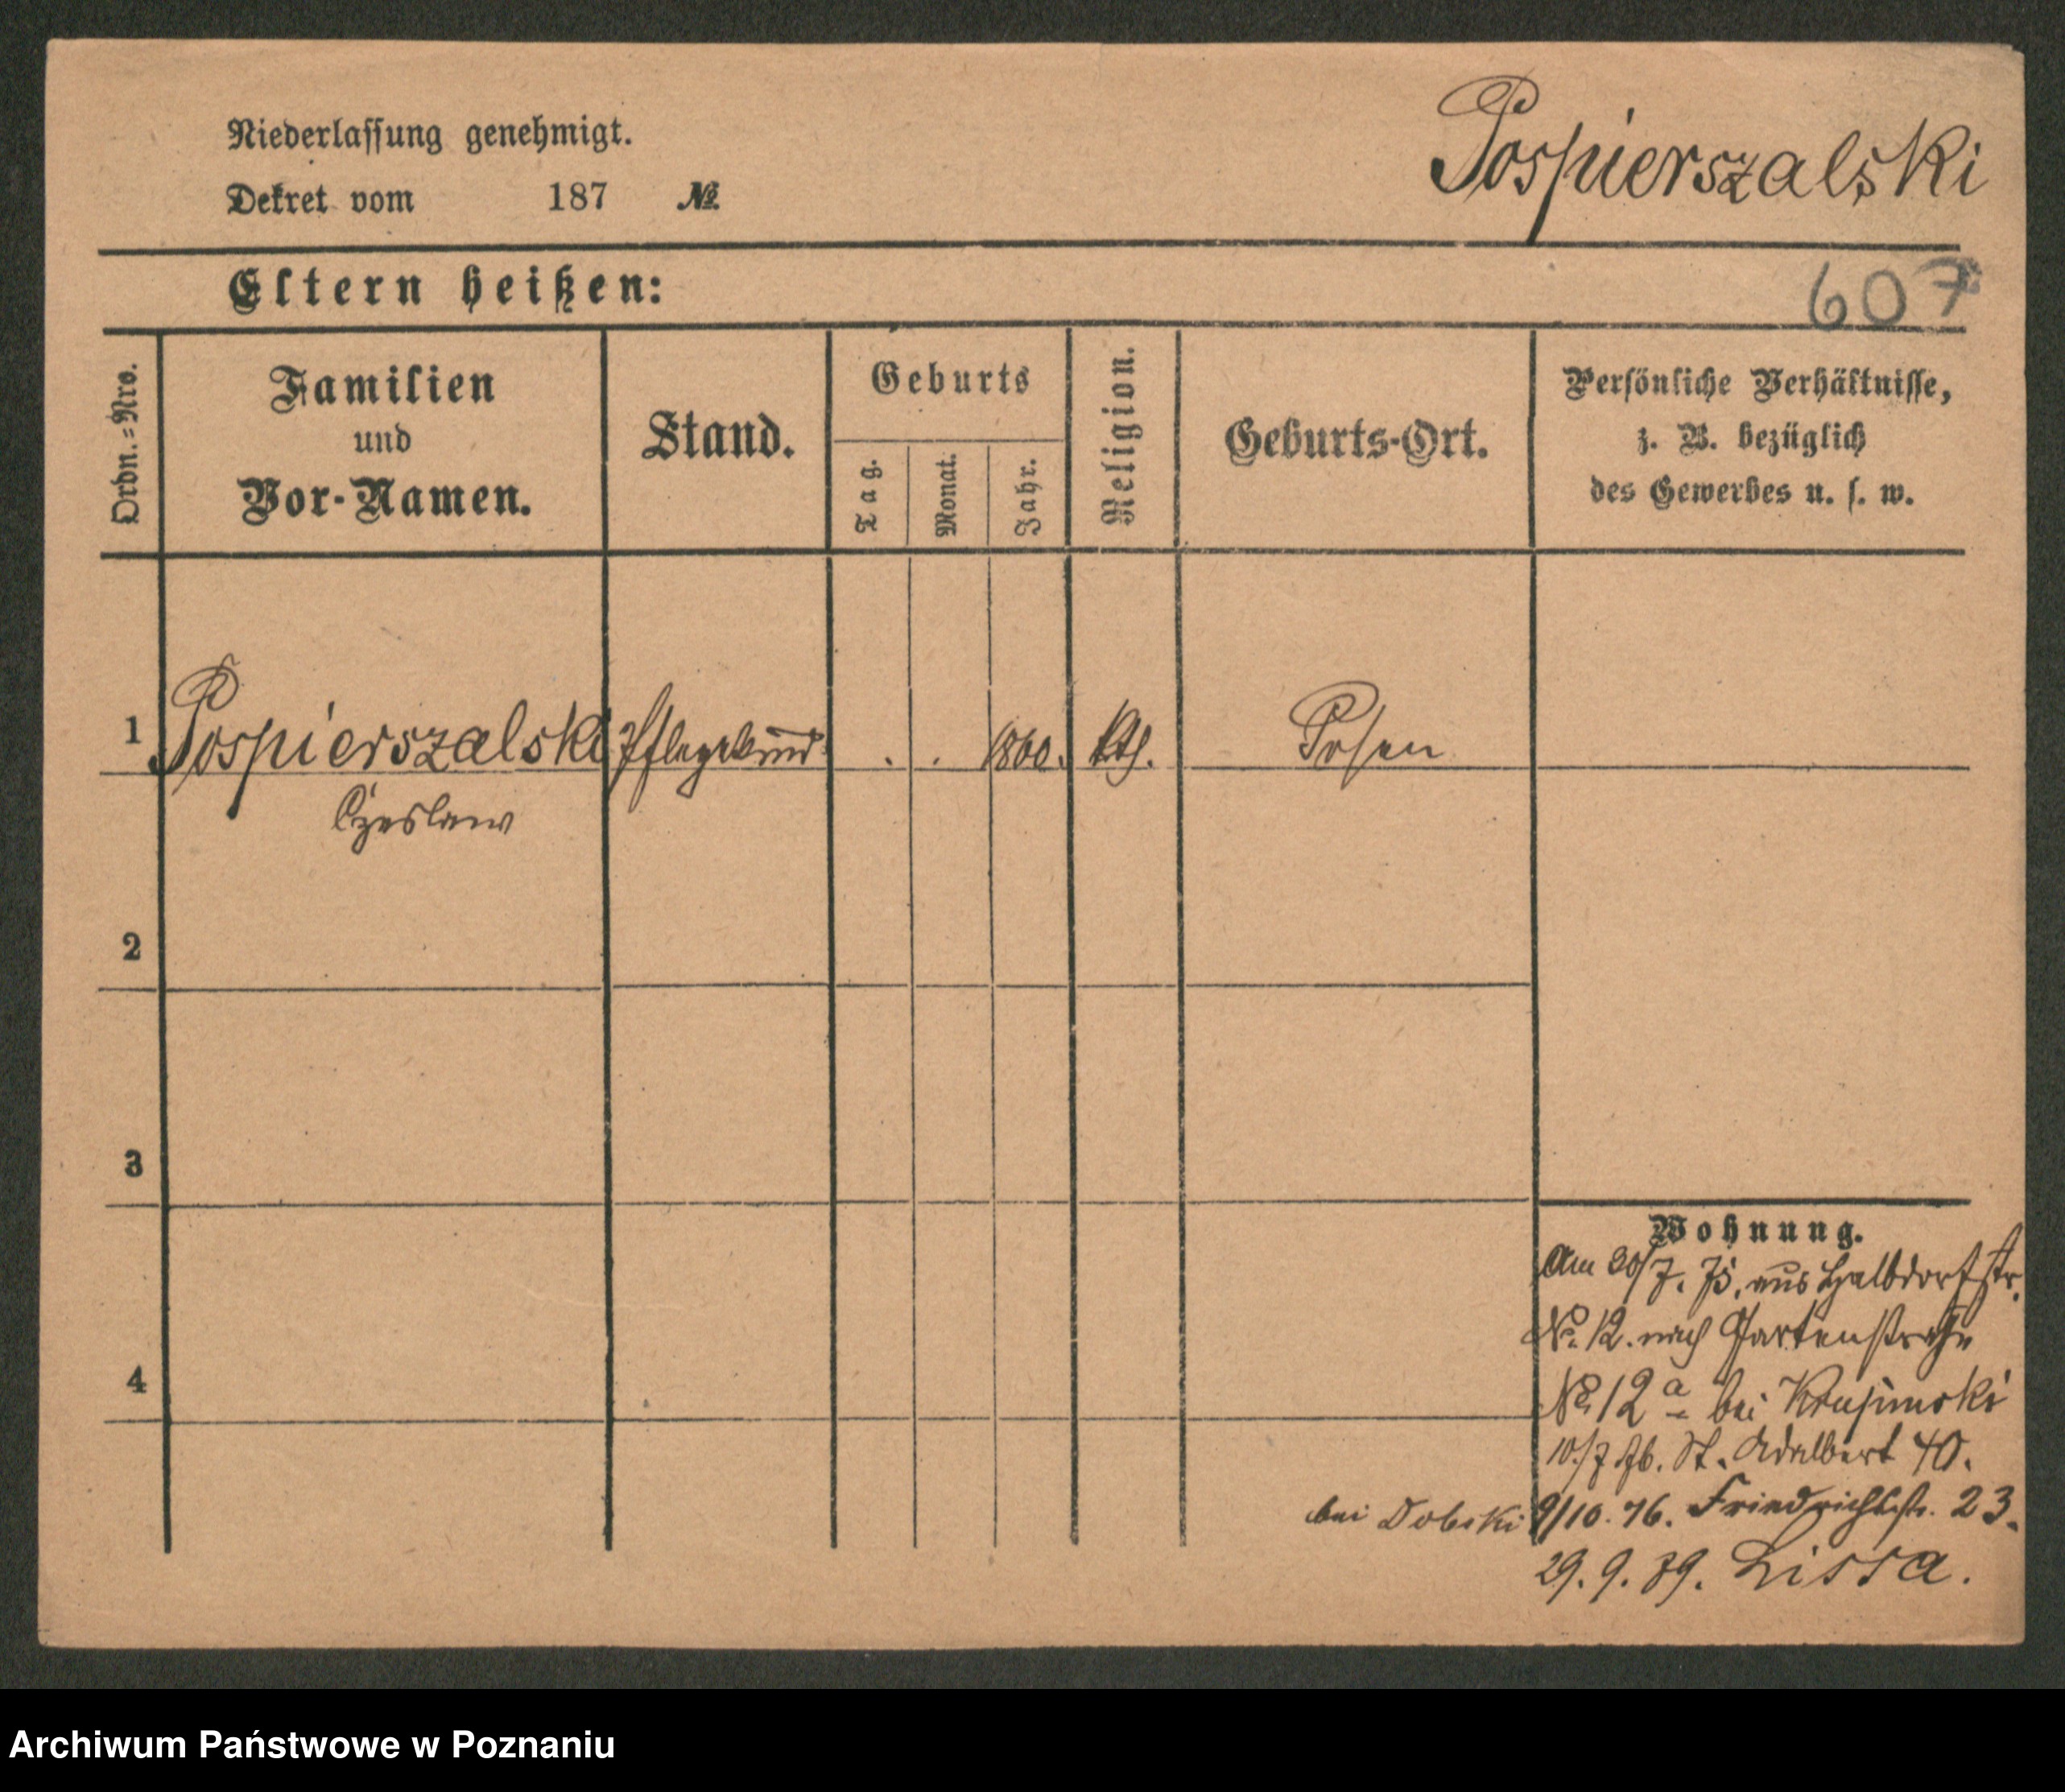 Niederlassung genehmigt.
Dekret vom 187 №
Pospierszalski
Eltern heißen:
607
Ordn.=Nro.
Familien
und
Vor-Namen.
Stand.
Geburts
Tag.
Monat.
Jahr.
Religion.
Geburts-Ort.
Persönliche Verhältnisse,
z. B. bezüglich
des Gewerbes u. s. w.
1 Pospierszalski Pflegekind . . 1860. kth. Posen
Czeslaw
2
3
4
Wohnung.
Am 30/7. 75. aus Halbdorfstr.
No. 12. nach Gartenstraße
No. 12 a bei
10/7 76. St. Adalbert 40.
bei Dobski 9/10. 76. Friedrichstr. 23.
29. 9. 89. Lissa.
Archiwum Państwowe w Poznaniu